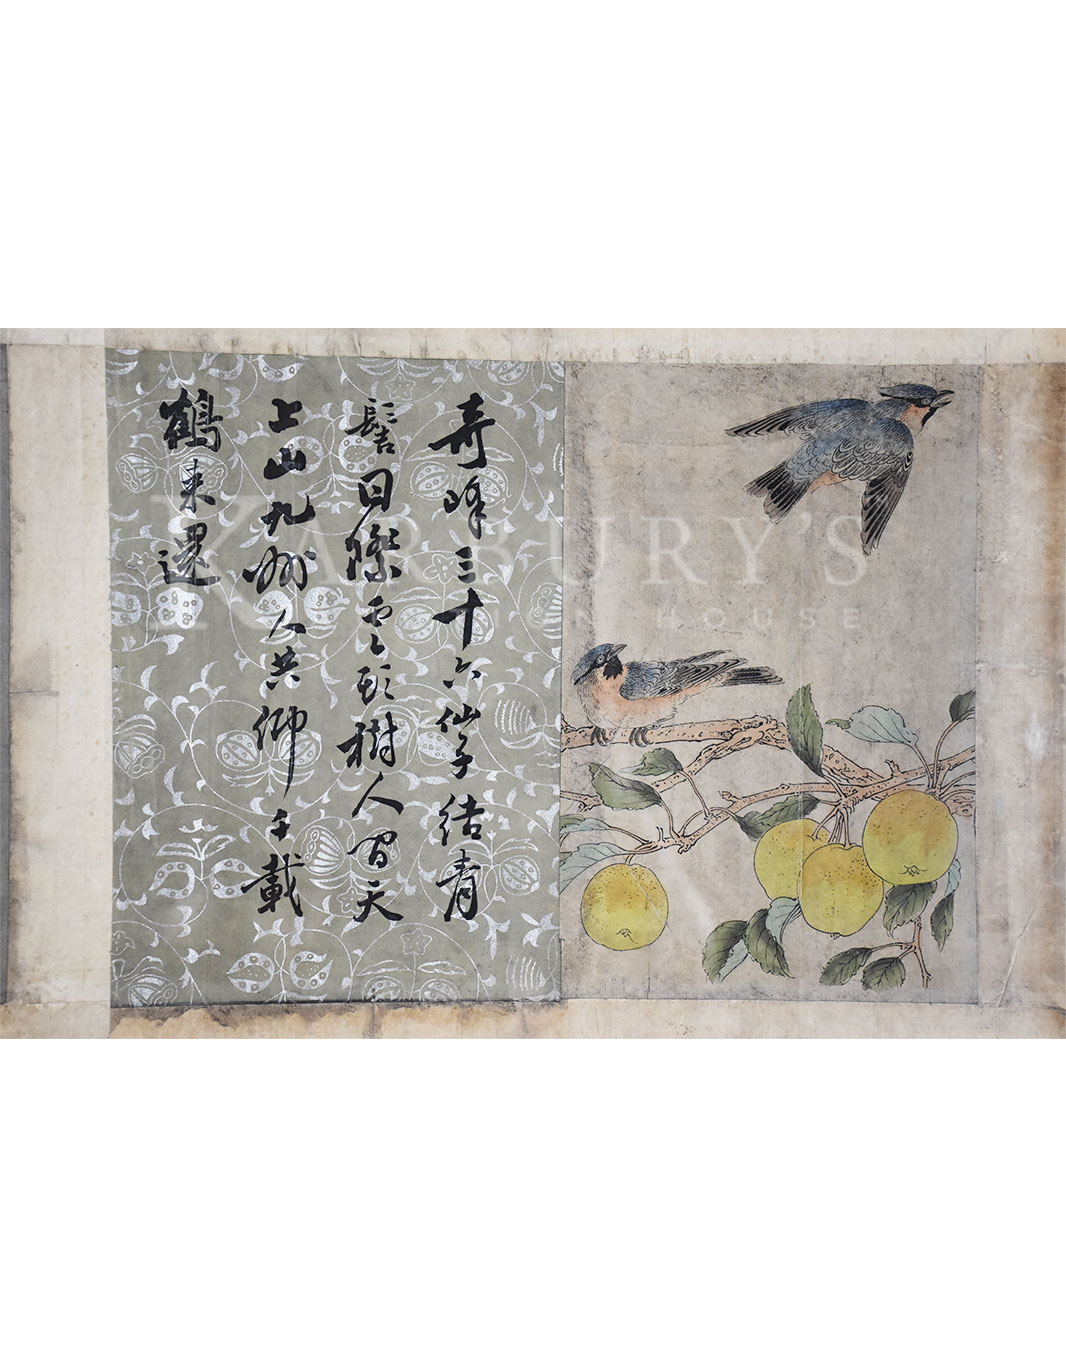 奇峰三十六仙子結青
髻日際雲頭樹人間天
上山九州人共仰千載
鶴來還
KARBURY'S
AUCTION HOUSE